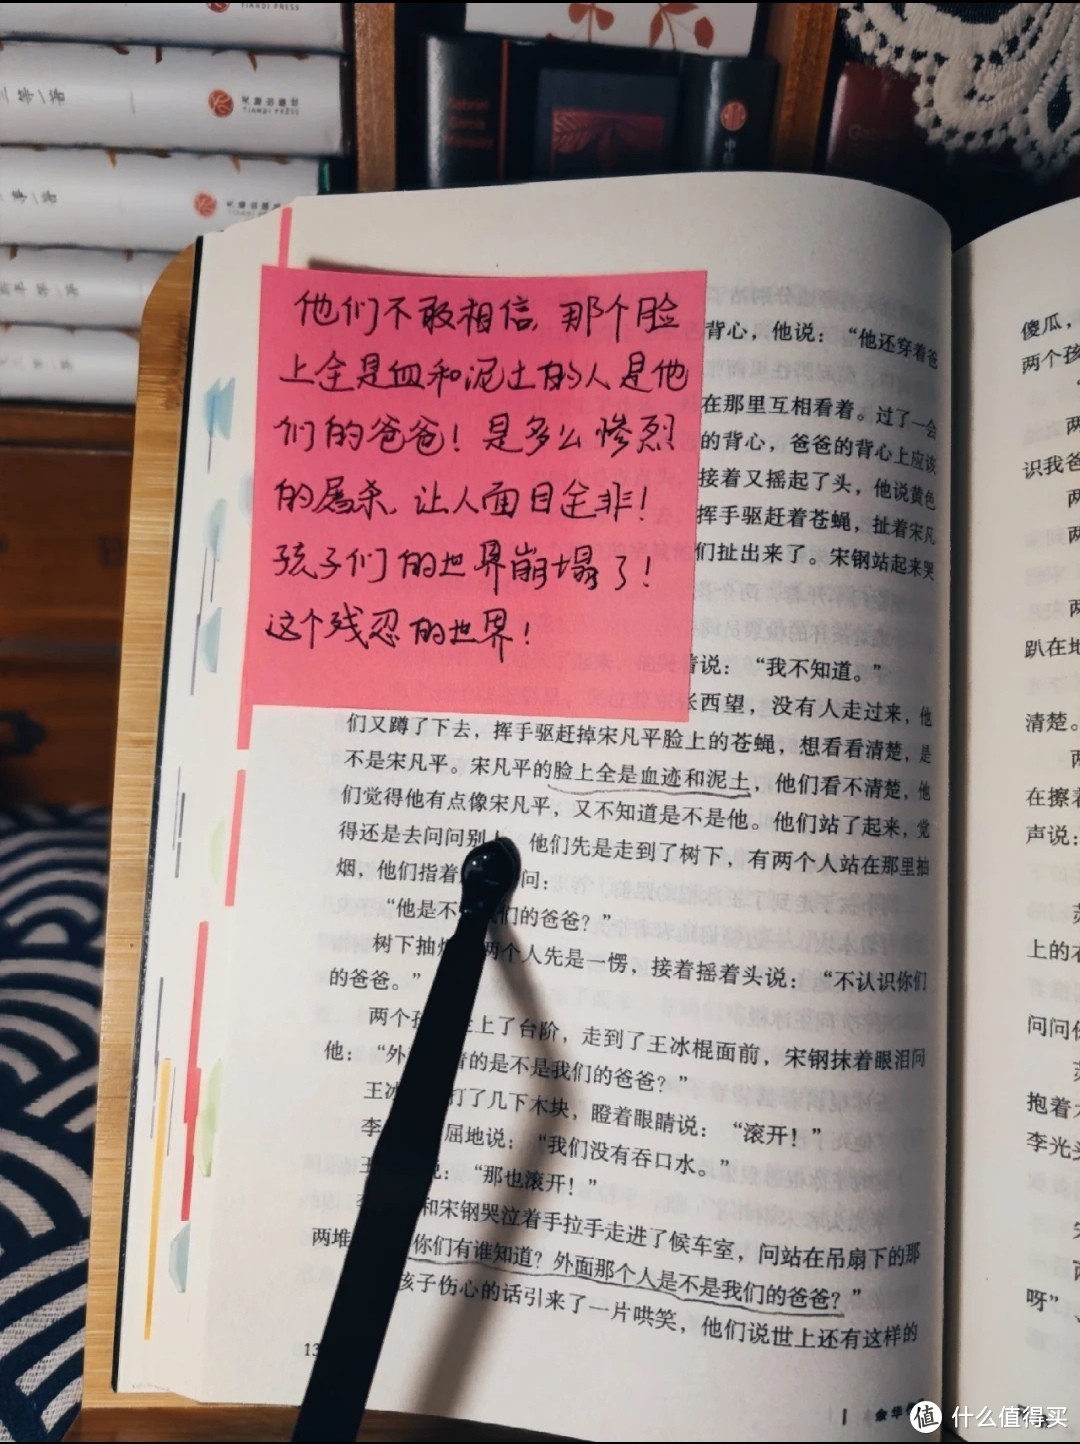 TIANDI PRESS
天地出版社
TIANDI PRESS
Gabriel
García
他们不敢相信，那个脸
上全是血和泥土的人是他
们的爸爸！是多么惨烈
的屠杀，让人面目全非！
孩子们的世界崩塌了！
这个残忍的世界！
背心，他说：“他还穿着爸
在那里互相看着。过了一会
的背心，爸爸的背心上应该
接着又摇起了头，他说黄色
挥手驱赶着苍蝇，扯着宋凡
们扯出来了。宋钢站起来哭
着说：“我不知道。”
张西望，没有人走过来，他
们又蹲了下去，挥手驱赶掉宋凡平脸上的苍蝇，想看看清楚，是
不是宋凡平。宋凡平的脸上全是血迹和泥土，他们看不清楚，他
们觉得他有点像宋凡平，又不知道是不是他。他们站了起来，觉
得还是去问问别 他们先是走到了树下，有两个人站在那里抽
烟，他们指着 问：
“他是不 们的爸爸？”
树下抽 两个人先是一愣，接着摇着头说：“不认识你们
的爸爸。”
两个 上了台阶，走到了王冰棍面前，宋钢抹着眼泪问
他：“外 的是不是我们的爸爸？”
王冰 打了几下木块，瞪着眼睛说：“滚开！”
李 屈地说：“我们没有吞口水。”
王 说：“那也滚开！”
李 和宋钢哭泣着手拉手走进了候车室，问站在吊扇下的那
两堆 你们有谁知道？外面那个人是不是我们的爸爸？”
孩子伤心的话引来了一片哄笑，他们说世上还有这样的
13
傻瓜，
两个孩
两
识我爸
两
两
两
趴在地
清楚。
两
在擦着
声说：
上的衣
问问
抱着
李光头
呀”
值 什么值得买